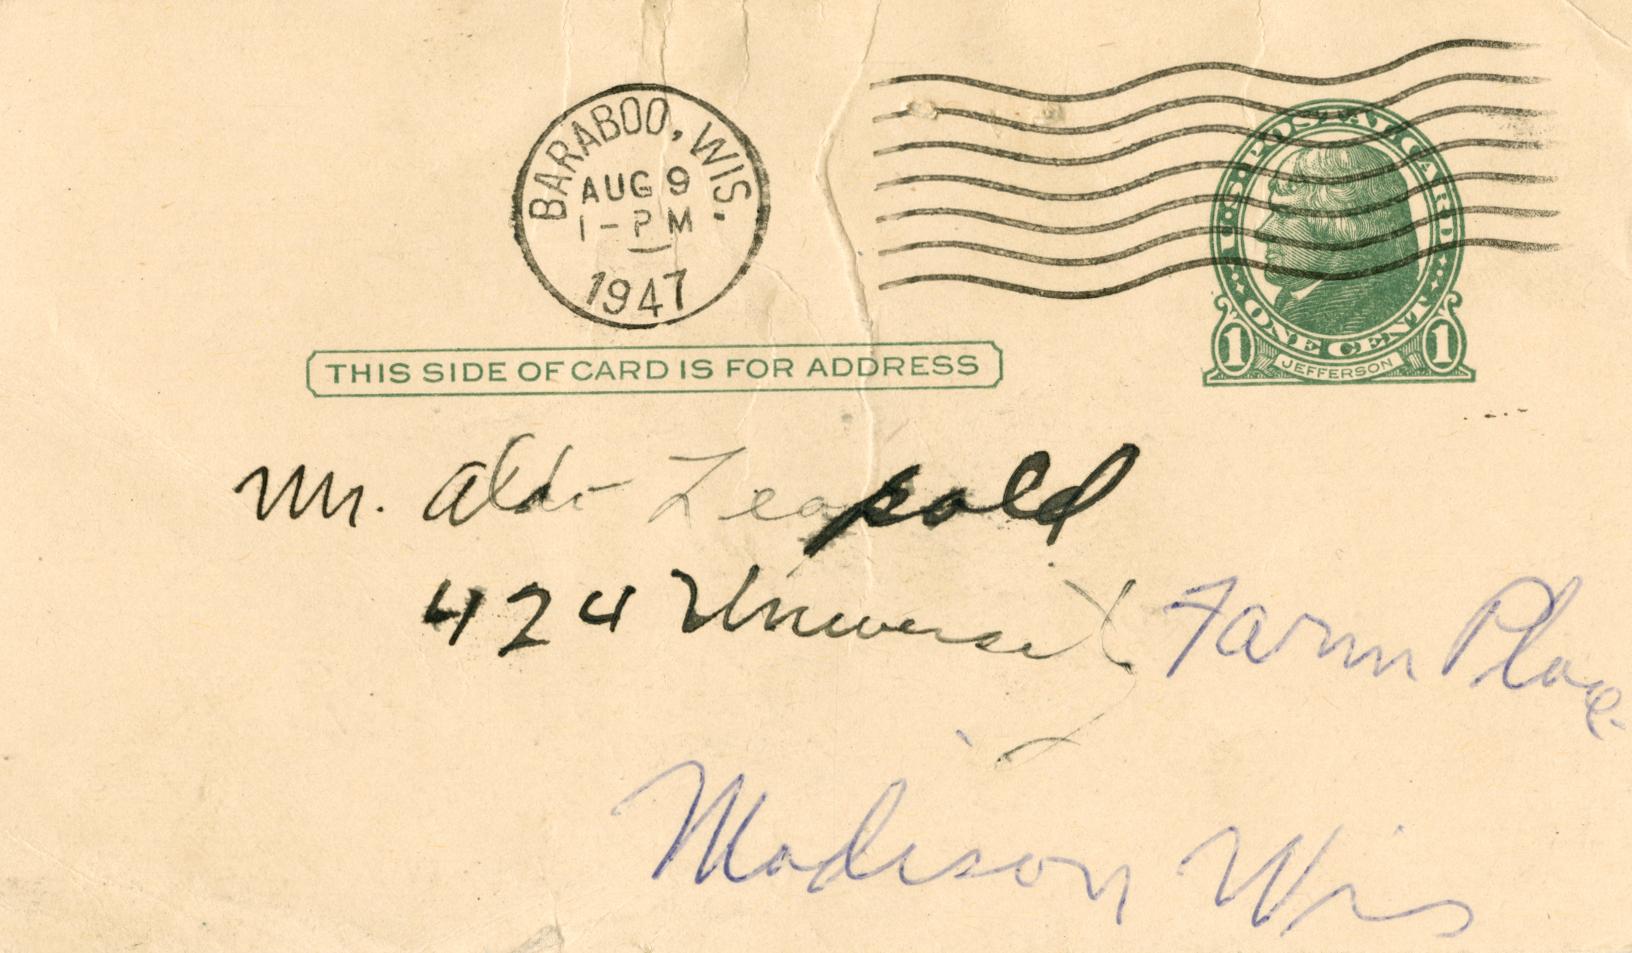 BARABOO, WIS.
AUG 9
1-PM
1947
U·S·POSTAL CARD
ONE CENT
1 JEFFERSON 1
THIS SIDE OF CARD IS FOR ADDRESS
Mr. Aldo Leopold
424 University Farm Place
Madison Wis